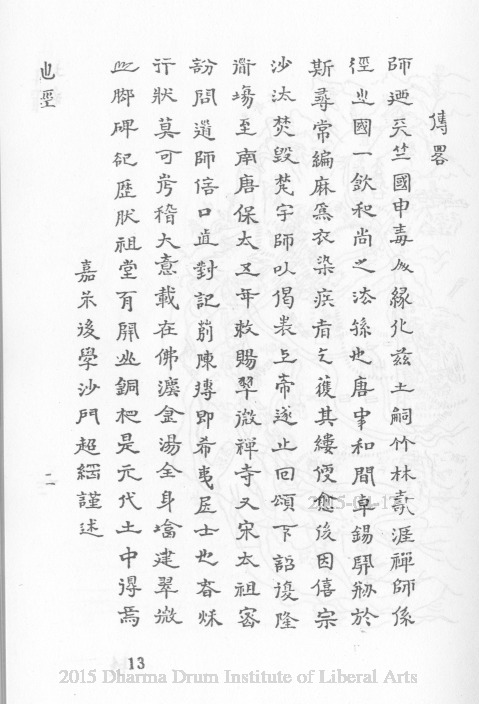 傳畧
師迺天竺國申毒人緣化茲土嗣竹林壽涯禪師係
徑山國一欽和尚之法孫也唐中和間卓錫開剏於
斯尋常編麻為衣染疾者乞獲其縷便愈後因僖宗
沙汰焚毀梵宇師以偈表上帝遂止回頌下詔復隆
衢場至南唐保大五年敕賜翠微禪寺又宋太祖密
訪問道師信口直對記莂陳摶即希夷居士也春秋
行狀莫可考稽大意載在佛灋金湯全身墖建翠微
山腳碑記歷朕祖堂有開山銅杷是元代土中得焉
嘉禾後學沙門超綱謹述
也聖
二
13
2015 Dharma Drum Institute of Liberal Arts